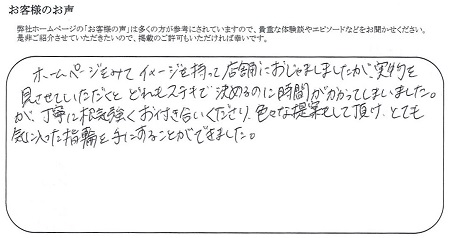 お客様のお声
弊社ホームページの「お客様の声」は多くの方が参考にされていますので、貴重な体験談やエピソードなどをお聞かせください。
是非ご紹介させていただきたいので、掲載のご許可もいただければ幸いです。
ホームページをみてイメージを持って店舗におじゃましましたが、実物を
見させていただくと どれもステキで 決めるのに時間がかかってしまいました。
が、丁寧に根気強くお付き合いくださり、色々な提案もして頂け、とても
気に入った指輪を手にすることができました。